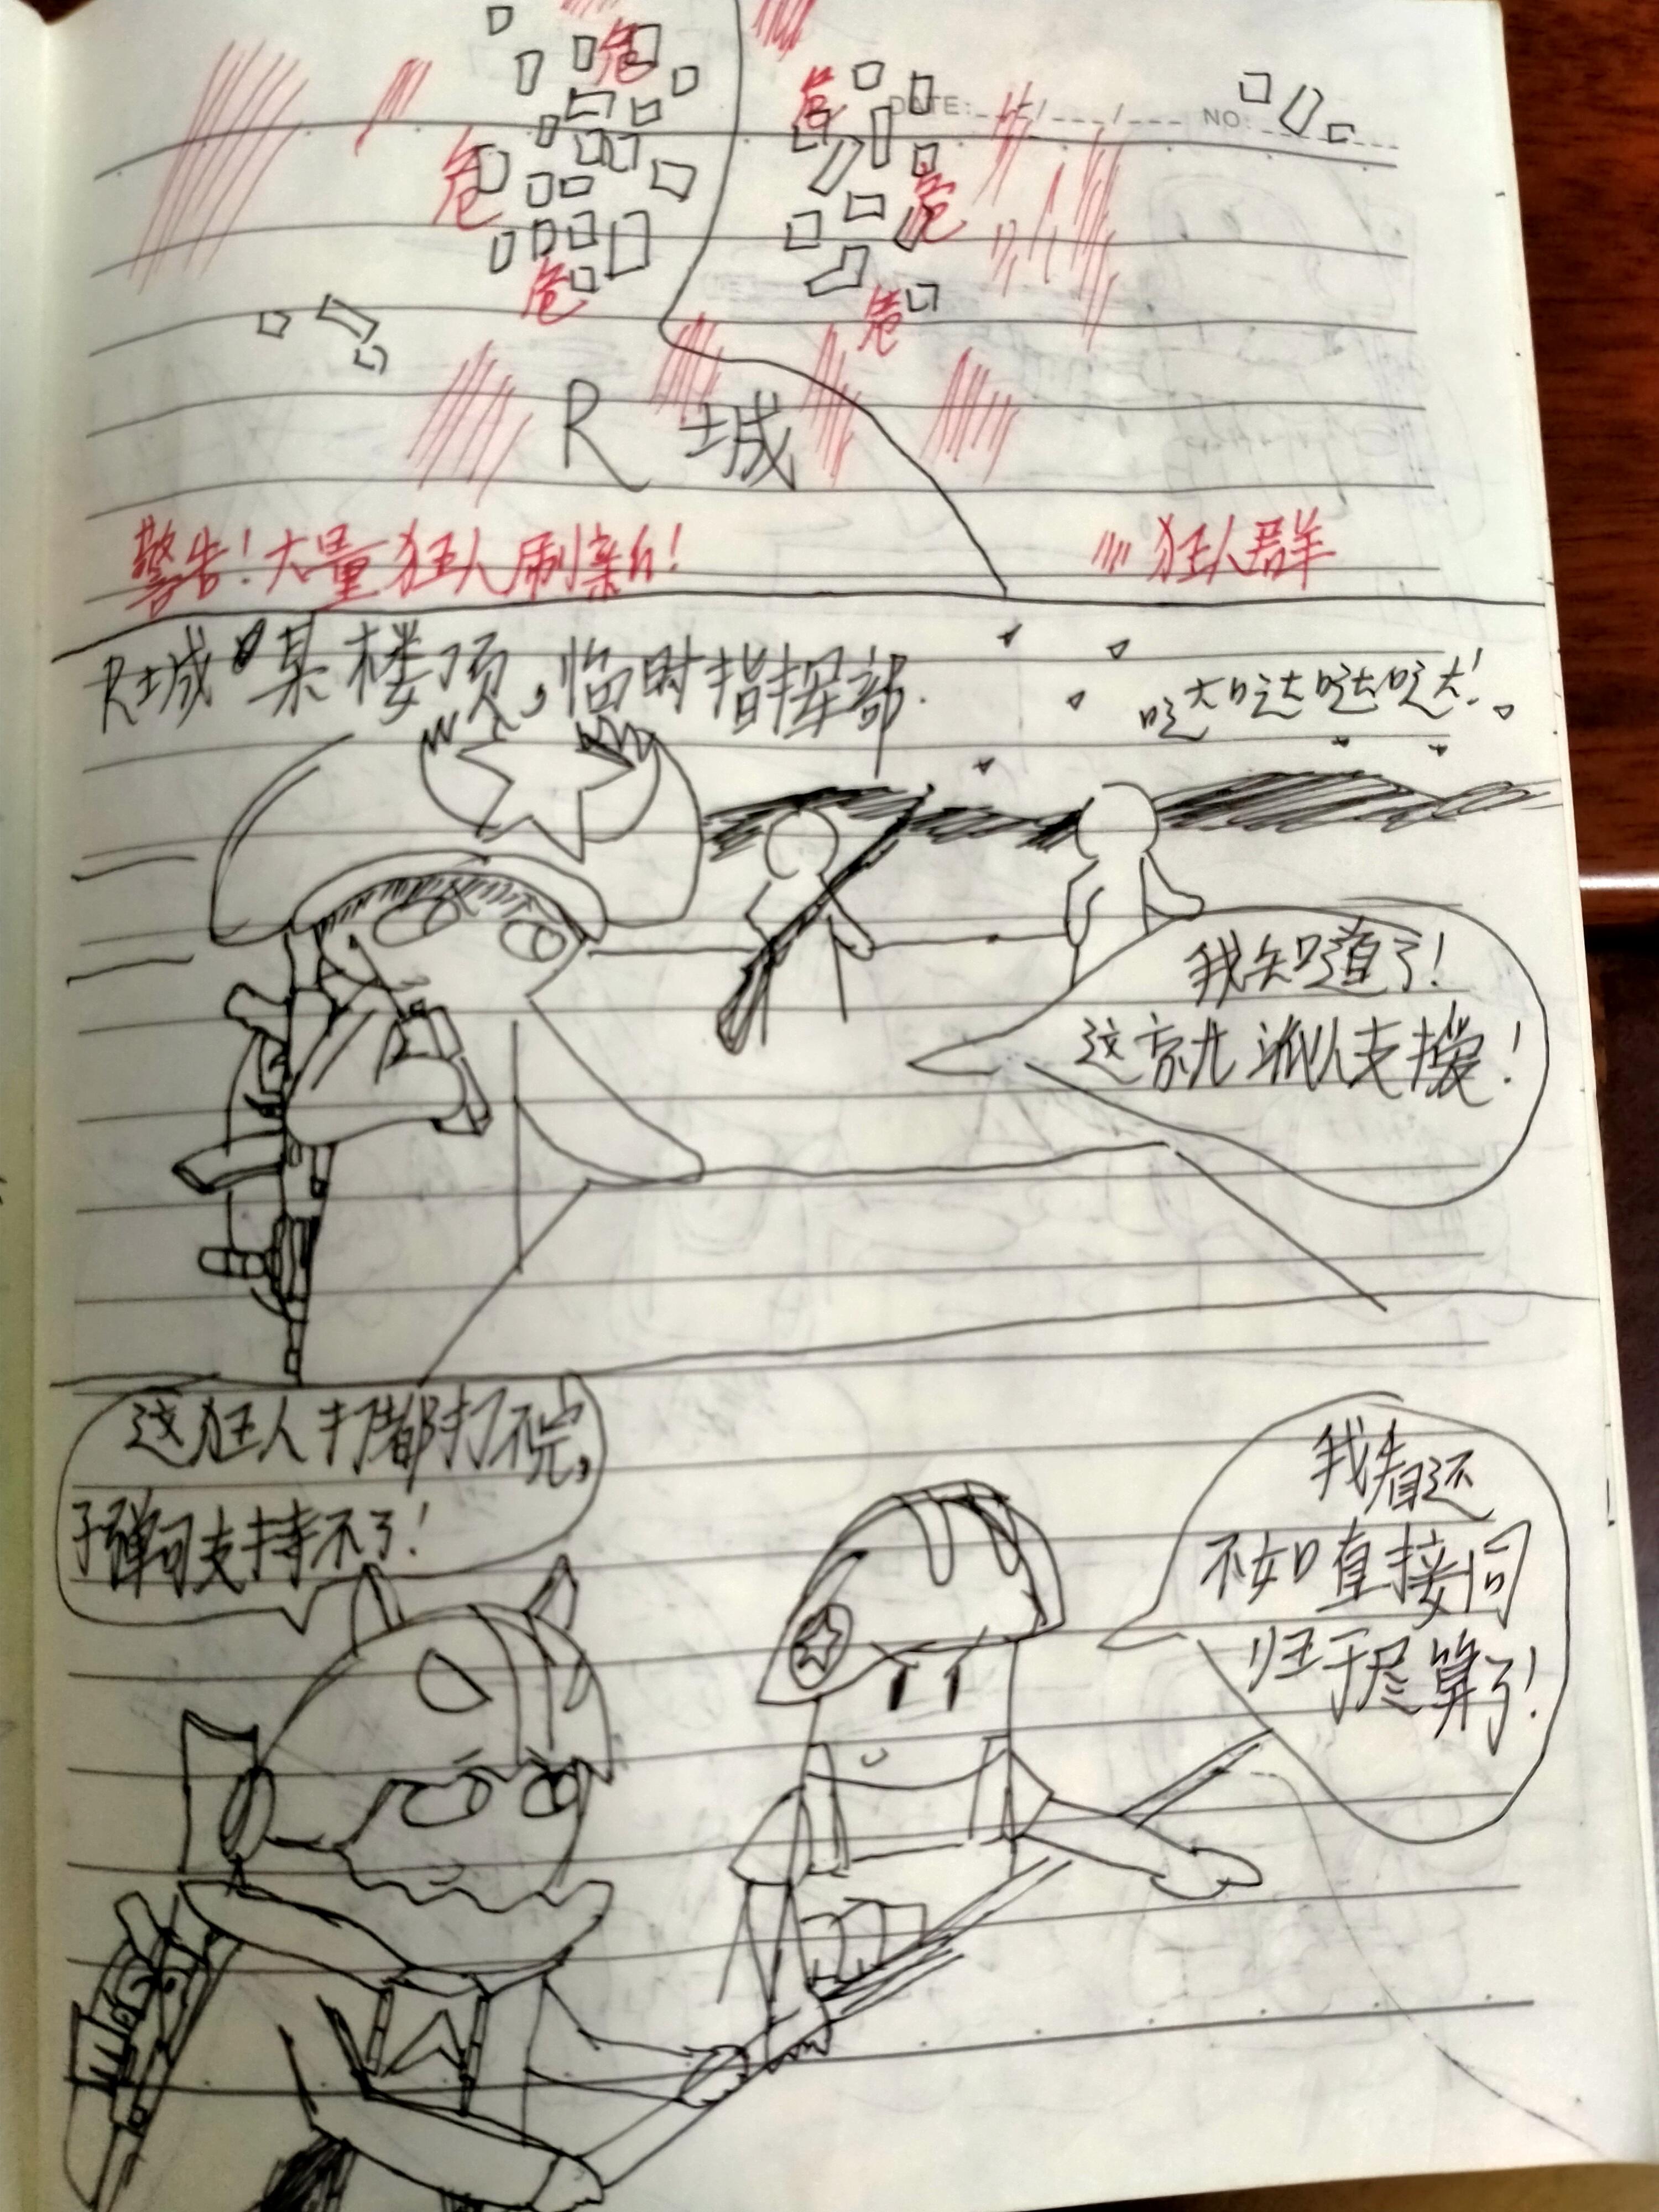 危
危
DATE: / / NO:
危
危
危
危
R城
警告！大量狂人刷新！
狂人群
R城某楼顶，临时指挥部.
哒大哒达哒哒大！
我知道了！
这就派人支援！
这狂人打都打不完，
子弹可支持不了！
我看还
不如直接同
归于尽算了！